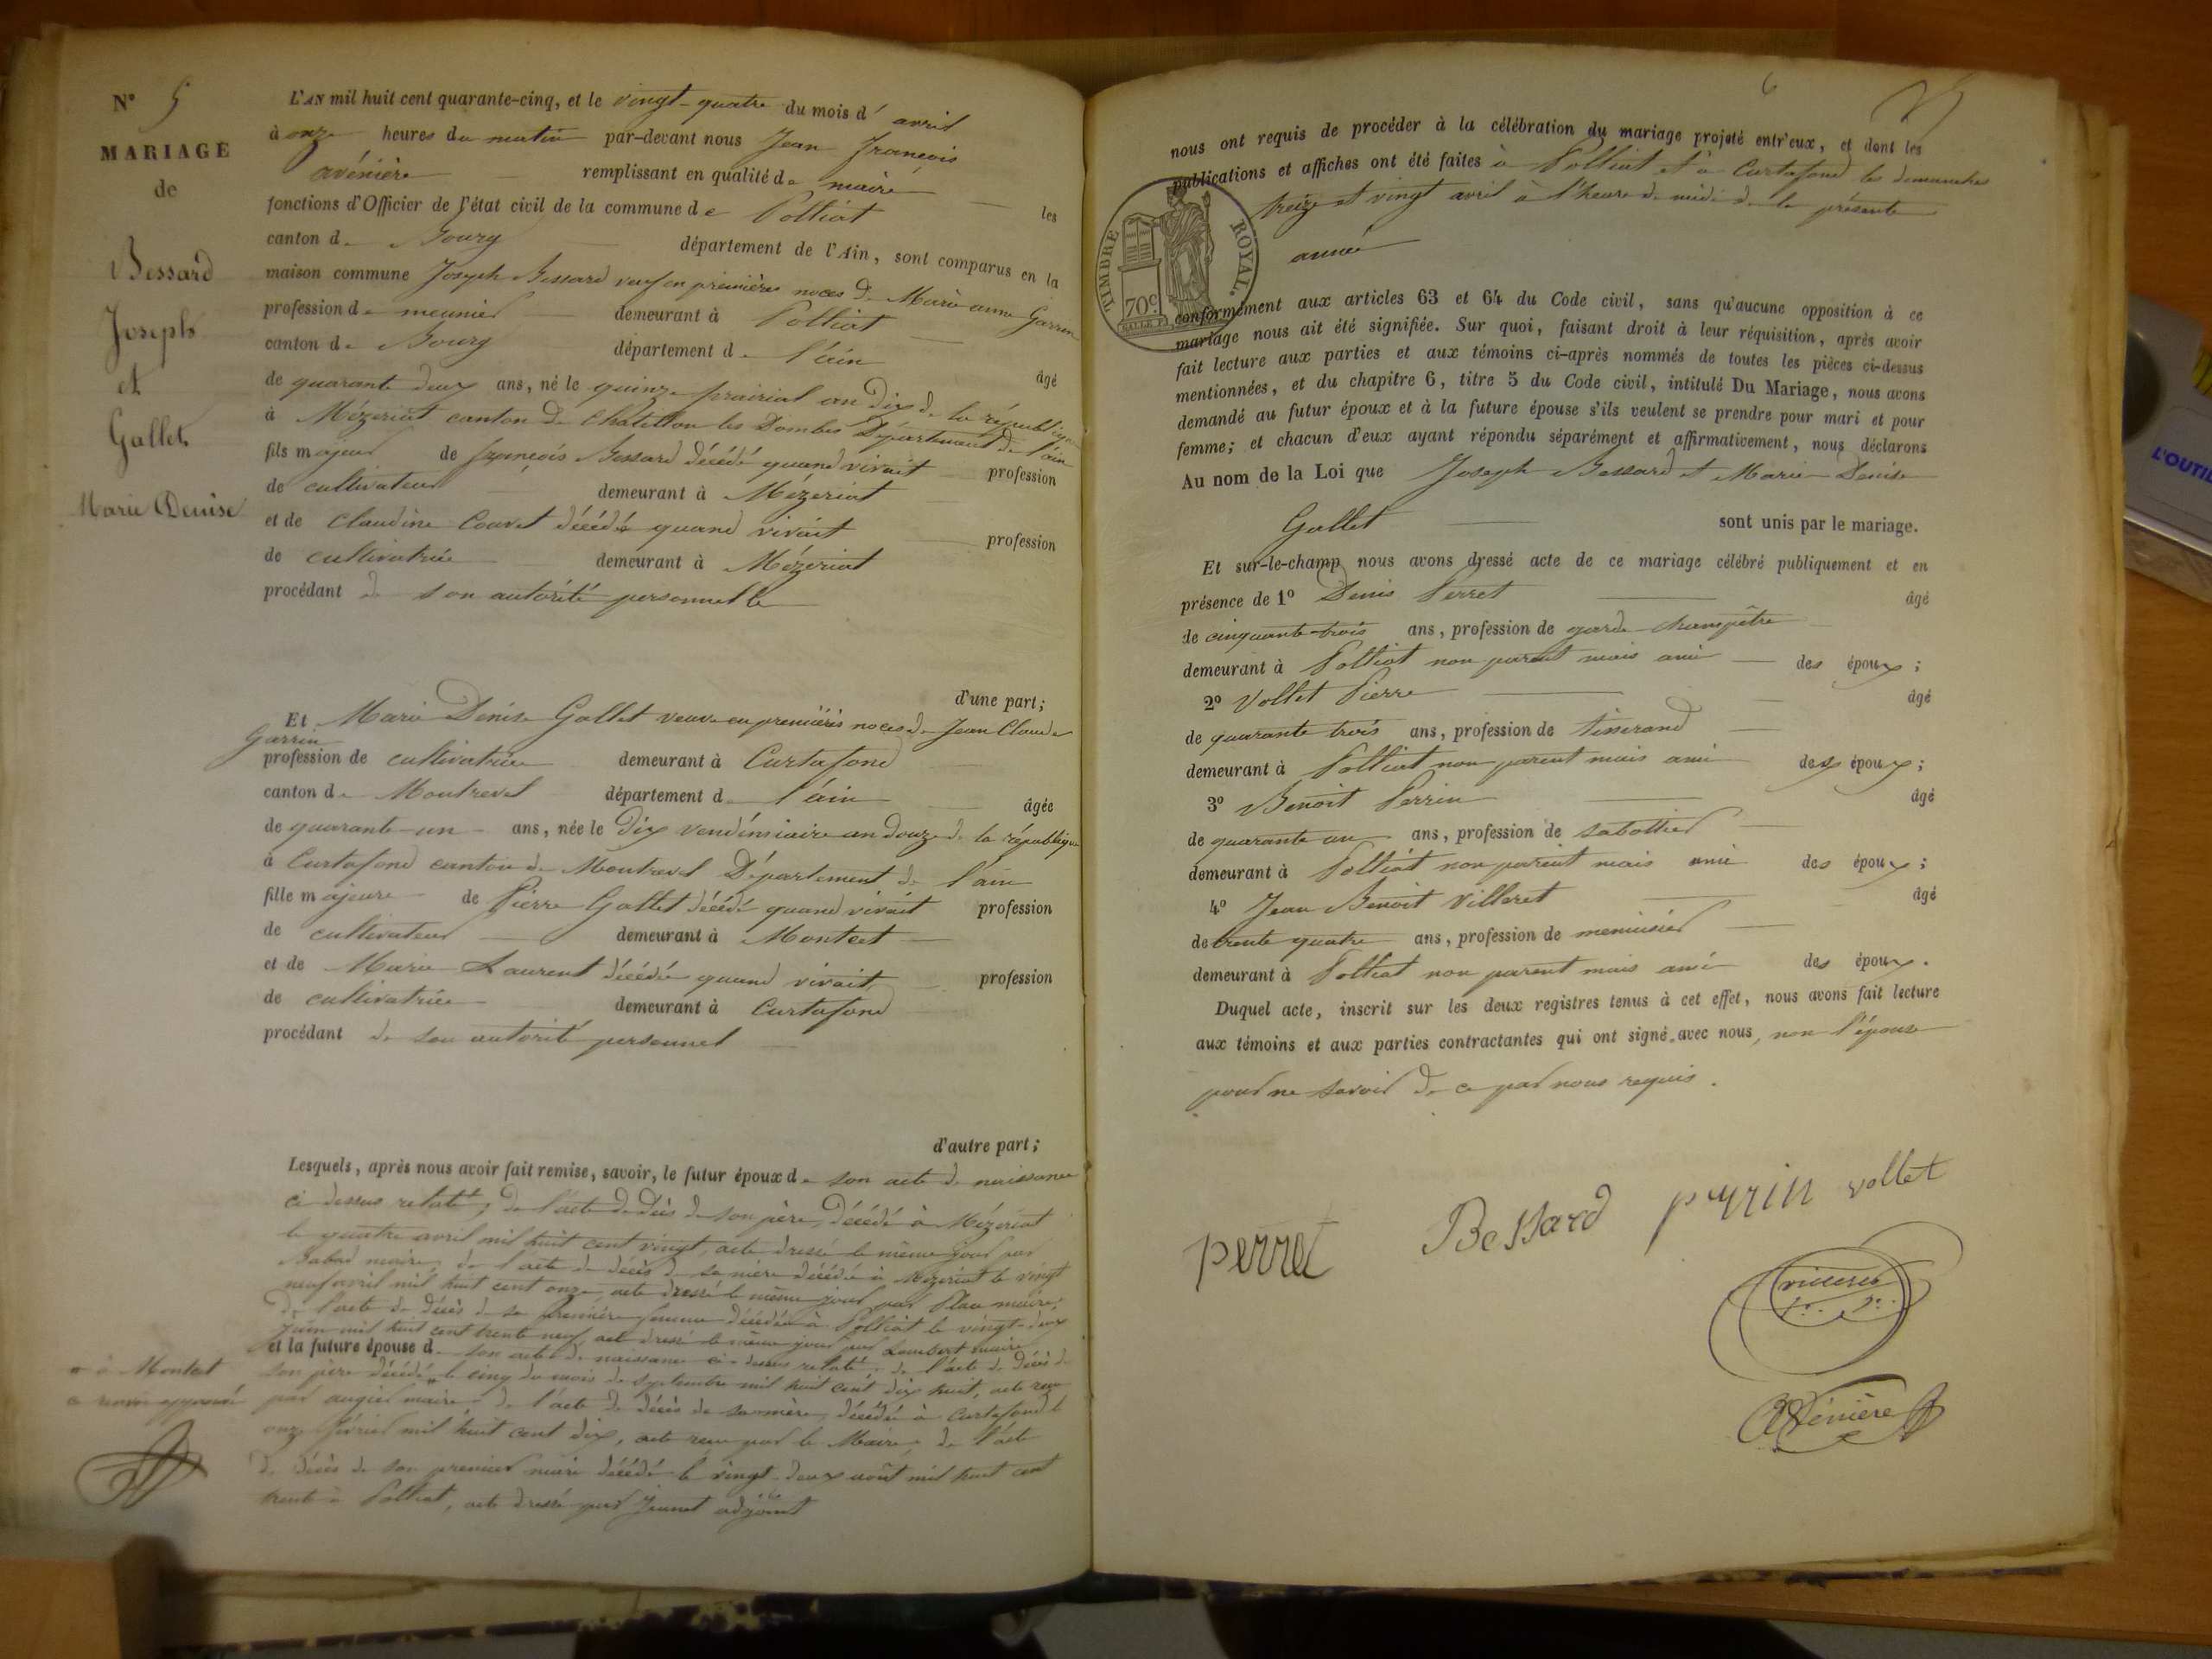 N° 5
MARIAGE
de
Bessard
Joseph
et
Gallet
Marie Denise
L'AN mil huit cent quarante-cinq, et le vingt-quatre du mois d'avril
à onze heures du matin par-devant nous Jean François
avénière remplissant en qualité de maire les
fonctions d'Officier de l'état civil de la commune de Polliat
canton de Bourg département de l'Ain, sont comparus en la
maison commune Joseph Bessard veuf en premières noces de Marie anne Garrin
profession de meunier demeurant à Polliat
canton de Bourg département de l'ain âgé
de quarante deux ans, né le quinze prairial an dix de la république
à Mézériat canton de Chatillon les Dombes Département de l'ain
fils majeur de françois Bessard décédé quand vivait profession
de cultivateur demeurant à Mézériat
et de Claudine Couvet décédée quand vivait profession
de cultivatrice demeurant à Mézériat
procédant de son autorité personnelle
d'une part;
Et Marie Denise Gallet veuve en premières noces de Jean Claude
Garrin
profession de cultivatrice demeurant à Curtafond
canton de Montrevel département de l'ain âgée
de quarante-un ans, née le dix vendémiaire an douze de la république
à Curtafond canton de Montrevel Département de l'ain
fille majeure de Pierre Gallet décédé quand vivait profession
de cultivateur demeurant à Montcet
et de Marie Laurent décédée quand vivait profession
de cultivatrice demeurant à Curtafond
procédant de son autorité personnel
d'autre part;
Lesquels, après nous avoir fait remise, savoir, le futur époux de son acte de naissance
ci dessus relaté, de l'acte de décès de son père, décédé à Mézériat
le quatre avril mil huit cent vingt, acte dressé le même jour par
Babad maire, de l'acte de décès de sa mère décédée à Mézériat le vingt
neuf avril mil huit cent onze, acte dressé le même jour par Plan maire,
de l'acte de décès de sa première femme décédée à Polliat le vingt-deux
juin mil huit cent trente neuf, acte dressé le même jour par Lombert maire
et la future épouse de son acte de naissance ci-dessus relaté, de l'acte de décès de
son père décédé le cinq du mois de septembre mil huit cent dix huit, acte reçu
par augier maire, de l'acte de décès de sa mère, décédée à Curtafond le
onze février mil huit cent dix, acte reçu par le Maire, de l'acte
de décès de son premier mari décédé le vingt-deux août mil huit cent
trente à Polliat, acte dressé par Jeunet adjoint
à Montcet
renvoi approuvé
6
nous ont requis de procéder à la célébration du mariage projeté entr'eux, et dont les
publications et affiches ont été faites à Polliat et à Curtafond les dimanches
treize et vingt avril à l'heure de midi de la présente
année
TIMBRE ROYAL.
70c.
conformément aux articles 63 et 64 du Code civil, sans qu'aucune opposition à ce
mariage nous ait été signifiée. Sur quoi, faisant droit à leur réquisition, après avoir
fait lecture aux parties et aux témoins ci-après nommés de toutes les pièces ci-dessus
mentionnées, et du chapitre 6, titre 5 du Code civil, intitulé Du Mariage, nous avons
demandé au futur époux et à la future épouse s'ils veulent se prendre pour mari et pour
femme; et chacun d'eux ayant répondu séparément et affirmativement, nous déclarons
Au nom de la Loi que Joseph Bessard et Marie Denise
Gallet sont unis par le mariage.
Et sur-le-champ nous avons dressé acte de ce mariage célébré publiquement et en
présence de 1° Denis Perret âgé
de cinquante-trois ans, profession de garde champêtre
demeurant à Polliat non parent mais ami des époux;
2° Vollet Pierre âgé
de quarante trois ans, profession de tisserand
demeurant à Polliat non parent mais ami des époux;
3° Benoit Perrin âgé
de quarante un ans, profession de sabottier
demeurant à Polliat non parent mais ami des époux;
4° Jean Benoit Villeret âgé
de trente quatre ans, profession de menuisier
demeurant à Polliat non parent mais ami des époux.
Duquel acte, inscrit sur les deux registres tenus à cet effet, nous avons fait lecture
aux témoins et aux parties contractantes qui ont signé avec nous, non l'épouse
pour ne savoir de ce par nous requis.
perret Bessard perrin vollet
villeret
Avénière
L'OUTIL